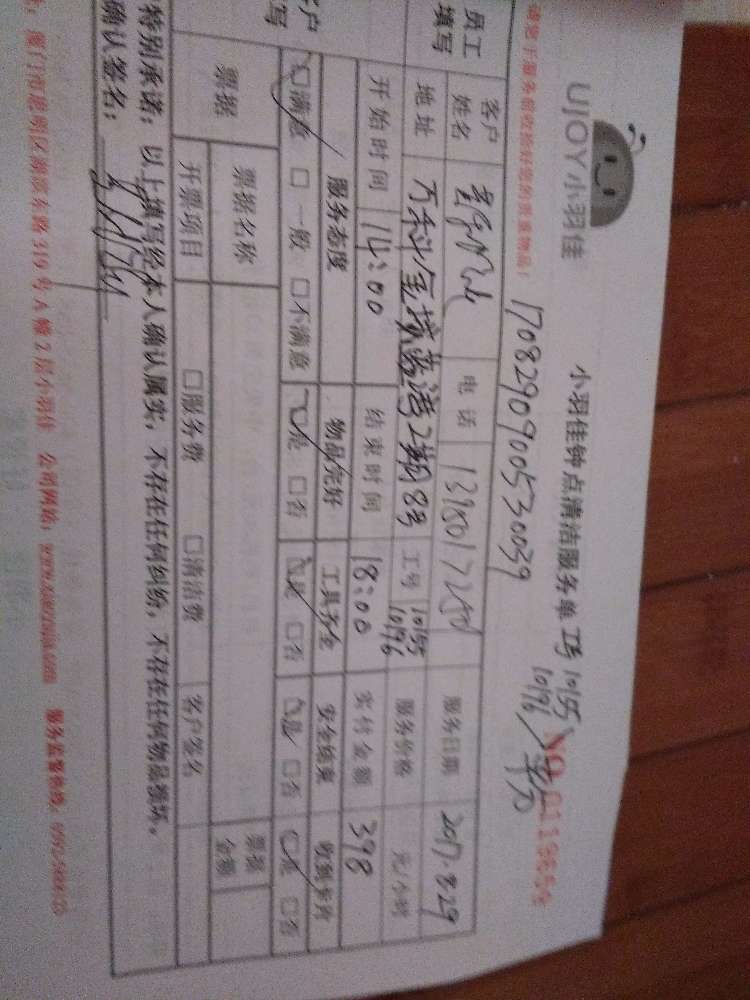 UJOY小羽佳
小羽佳钟点清洁服务单 工号 10155
10176
NO.
请您于服务前收拾好您的贵重物品!
1708290900530039
员工填写
客户姓名 电话 服务日期 2017.8.29
地址 万科金域蓝湾2期8号 工号 10155 10176 服务价格 元/小时
开始时间 14:00 结束时间 18:00 实付金额 398
客户
写
服务态度 物品完好 工具齐全 收到卡片
□满意 □一般 □不满意 □是 □否 □是 □否 □是 □否 □是 □否
票据 票据名称 票据金额
开票项目 □服务费 □清洁费 客户签名
特别承诺: 以上填写经本人确认属实, 不存在任何纠纷, 不存在任何物品损坏。
确认签名:
厦门市思明区 319号A幢2层小羽佳 公司网站: 服务监督热线: